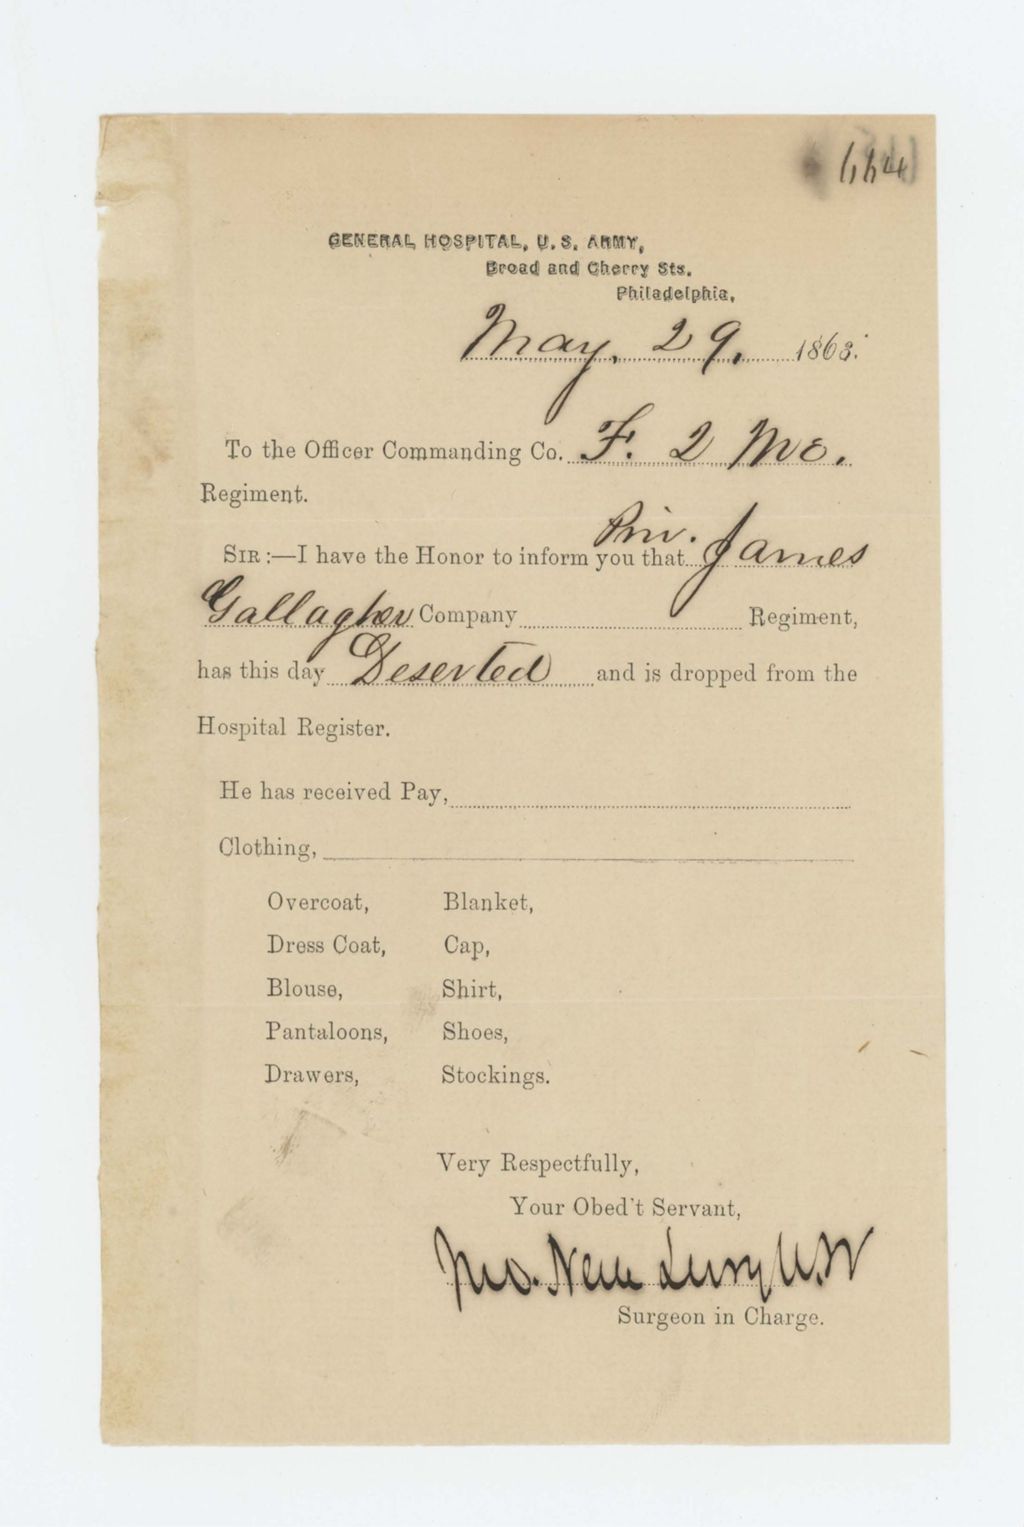 GENERAL HOSPITAL, U. S. ARMY,
Broad and Cherry Sts.
Philadelphia,
May. 29. 1863.
To the Officer Commanding Co. F. 2 Me.
Regiment.
SIR:—I have the Honor to inform you that Priv. James
Gallagher Company Regiment,
has this day Deserted and is dropped from the
Hospital Register.
He has received Pay,
Clothing,
Overcoat, Blanket,
Dress Coat, Cap,
Blouse, Shirt,
Pantaloons, Shoes,
Drawers, Stockings.
Very Respectfully,
Your Obed't Servant,
Jno. Neill Surg U.S.V
Surgeon in Charge.